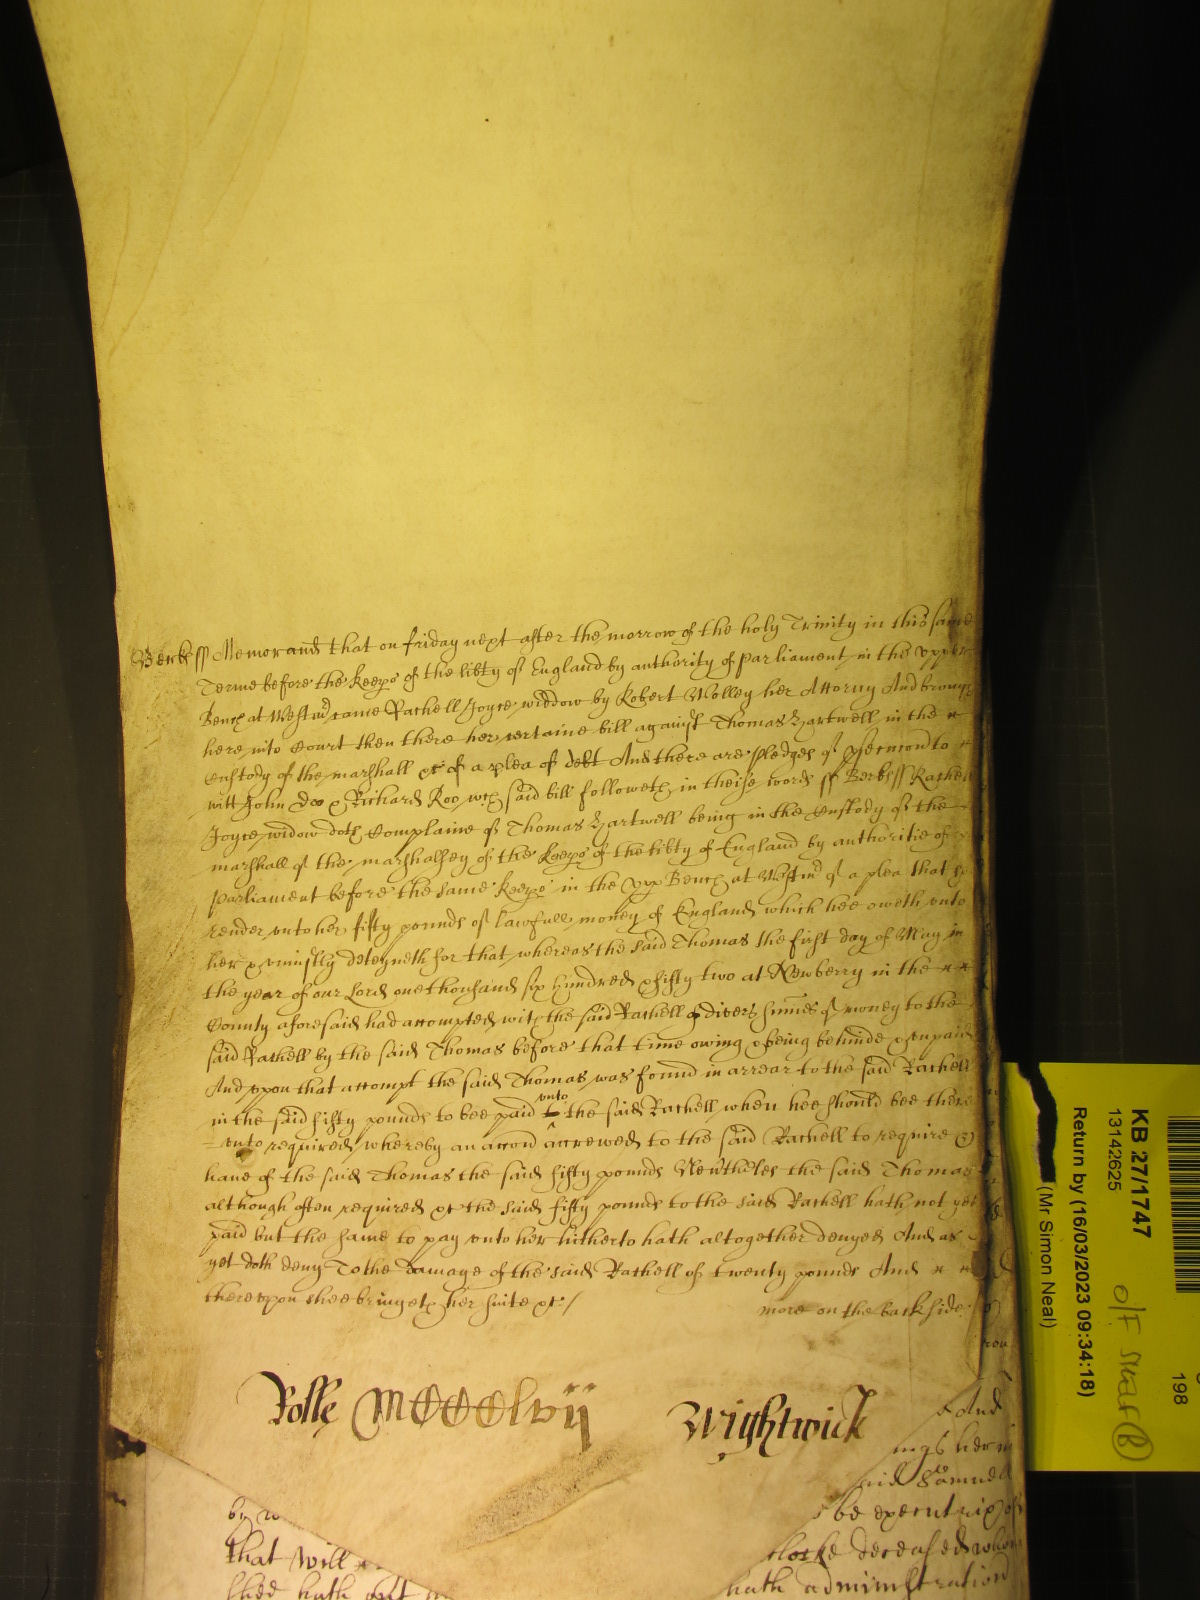 Berks ss Memorand that on friday next after the morrow of the holy Trinity in this same
Terme before the keeps of the libty of England by authority of Parliament in the upper
Bench at Westmr came Rachell Joyce widdow by Robert Molley her Attorny And brought
here into Court then there her certaine bill against Thomas Hartwell in the
Custody of the marshall &c of a plea of debt And there are pledges of
witt John Doo & Richard Roo wch said bill followeth in theise words ss Berks ss Rachell
Joyce widow doth Complaine of Thomas Hartwell being in the Custody of the
marshall of the marshalsey of the keeps of the libty of England by authoritie of
Parliament before the same keeps in the upp Bench at Westmr of a plea that
render unto her fifty pounds of lawfull money of England which hee oweth unto
her & uniustly deteyneth for that whereas the said Thomas the first day of May in
the year of our Lord one thousand six hundred & fifty two at Newberry in the
County aforesaid had accompted with the said Rachell of divers summes of money to the
said Rachell by the said Thomas before that time owing & being behinde & unpaid
And upon that accompt the said Thomas was found in arrear to the said Rachell
in the said fifty pounds to bee paid unto the said Rachell when hee should bee there
unto required whereby an accon accrewed to the said Rachell to require &
have of the said Thomas the said fifty pounds Nevtheles the said Thomas
although often required &c the said fifty pounds to the said Rachell hath not yet
paid but the same to pay unto her hitherto hath altogether denyed And as
yet doth deny To the damage of the said Rachell of twenty pounds And
thereupon shee bringeth her suite &c/
more on the backside
Rolle MCCCClvij
Wightwick
And
ings her
said Samuel
by w
be executrix of
that will
Clocke deceased whom
shee hath
hath administration
KB 27/1747
13142625
Return by (16/03/2023 09:34:18)
(Mr Simon Neal)
198